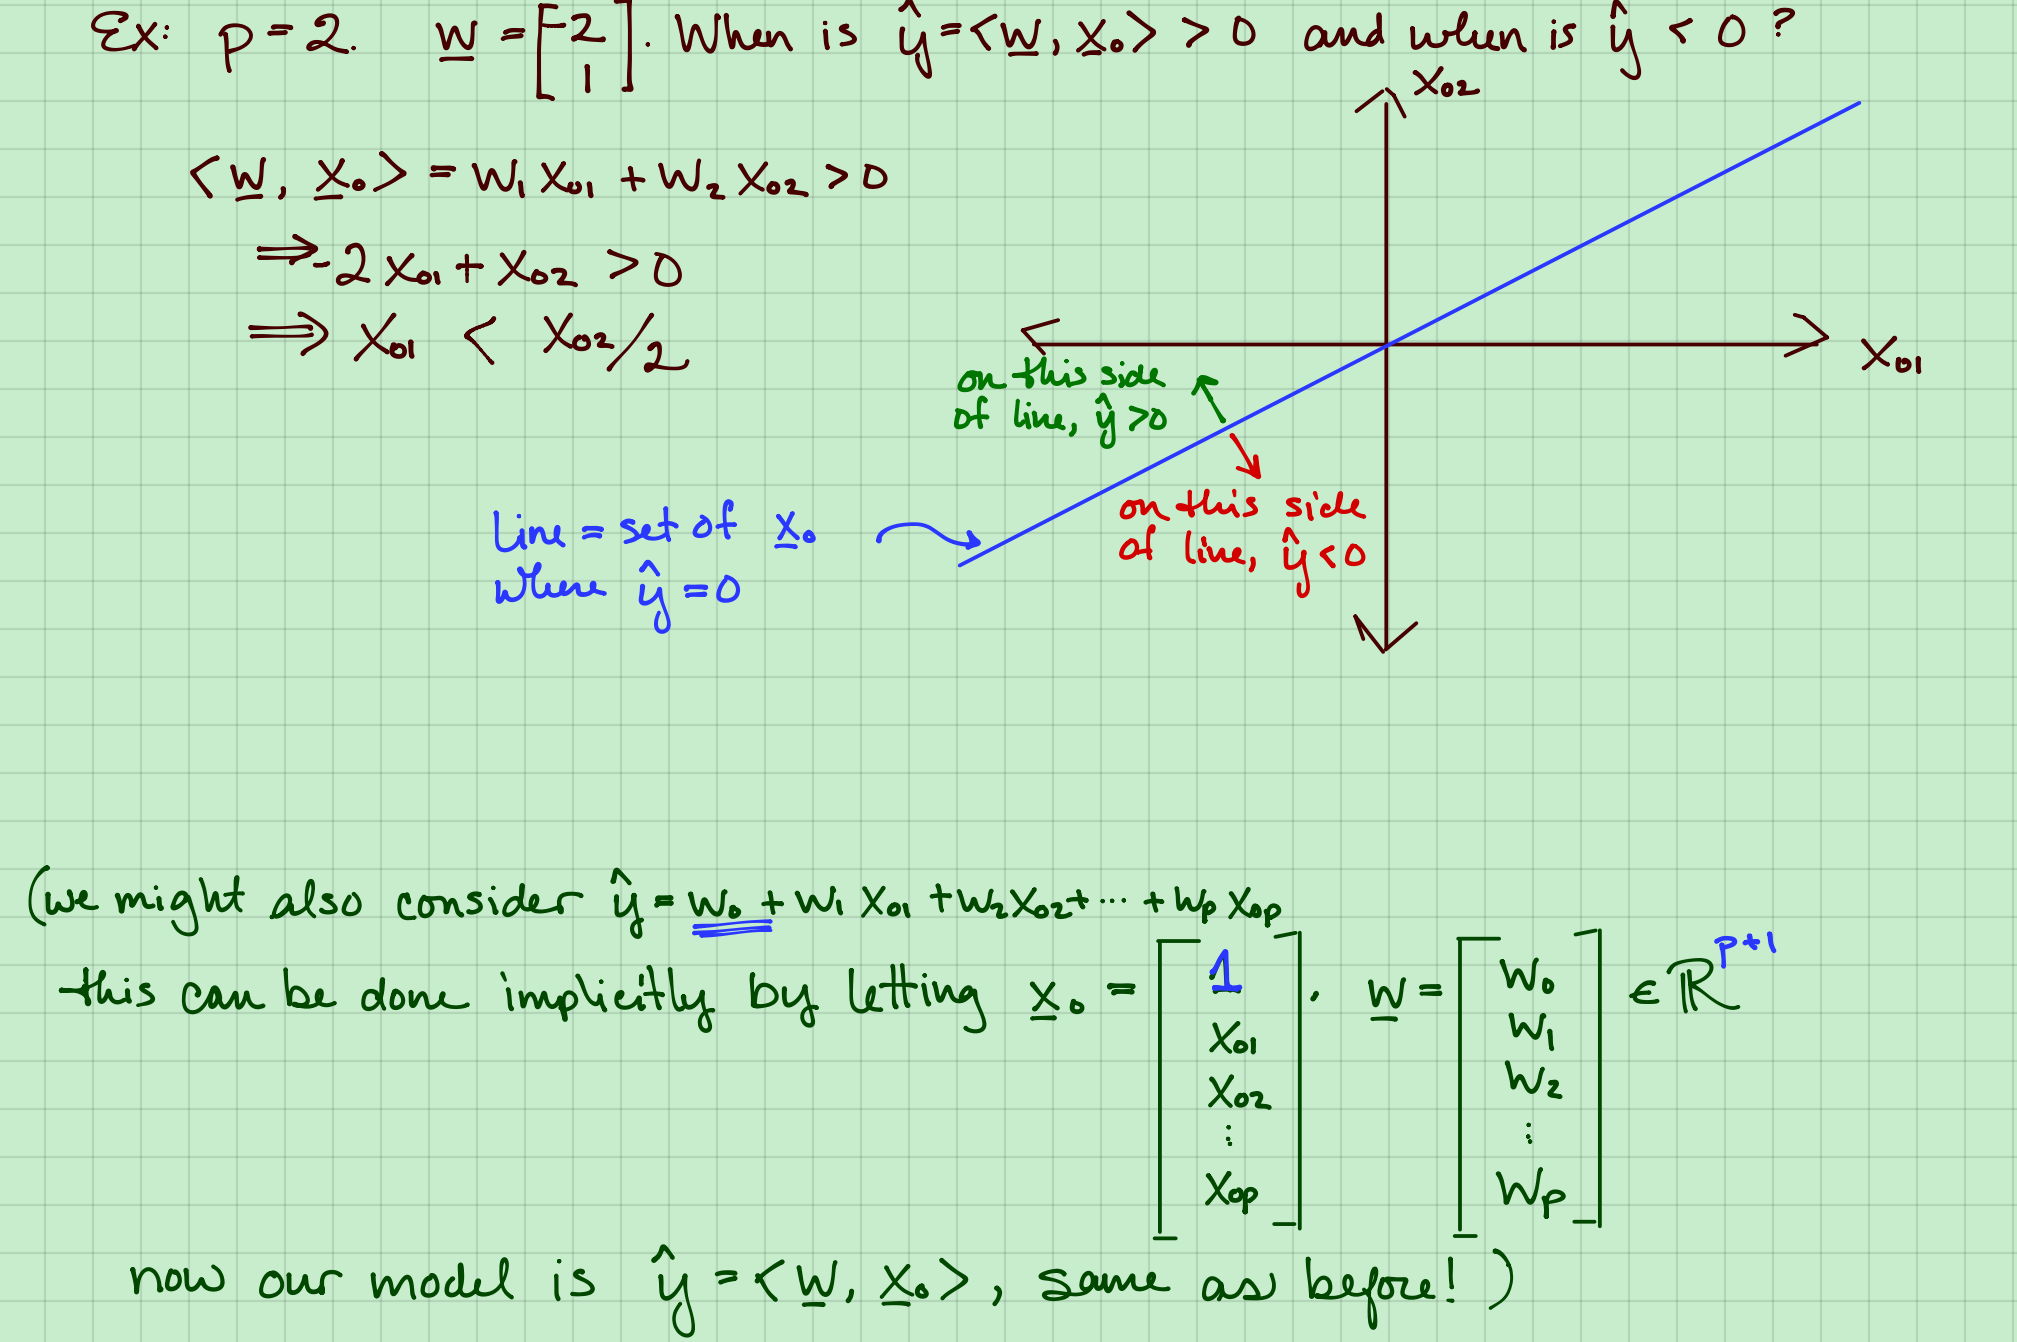 Ex: p = 2. w = [-2 1]. When is ŷ = <w, x₀> > 0 and when is ŷ < 0 ?
x₀₂
<w, x₀> = w₁ x₀₁ + w₂ x₀₂ > 0
⇒ -2 x₀₁ + x₀₂ > 0
⇒ x₀₁ < x₀₂/2
x₀₁
on this side
of line, ŷ > 0
on this side
of line, ŷ < 0
Line = set of x₀
where ŷ = 0
(we might also consider ŷ = w₀ + w₁ x₀₁ + w₂ x₀₂ + ... + wₚ x₀ₚ
this can be done implicitly by letting x₀ = [1 x₀₁ x₀₂ ⋮ x₀ₚ]. w = [w₀ w₁ w₂ ⋮ wₚ] ∈ ℝᵖ⁺¹
now our model is ŷ = <w, x₀>, same as before!)